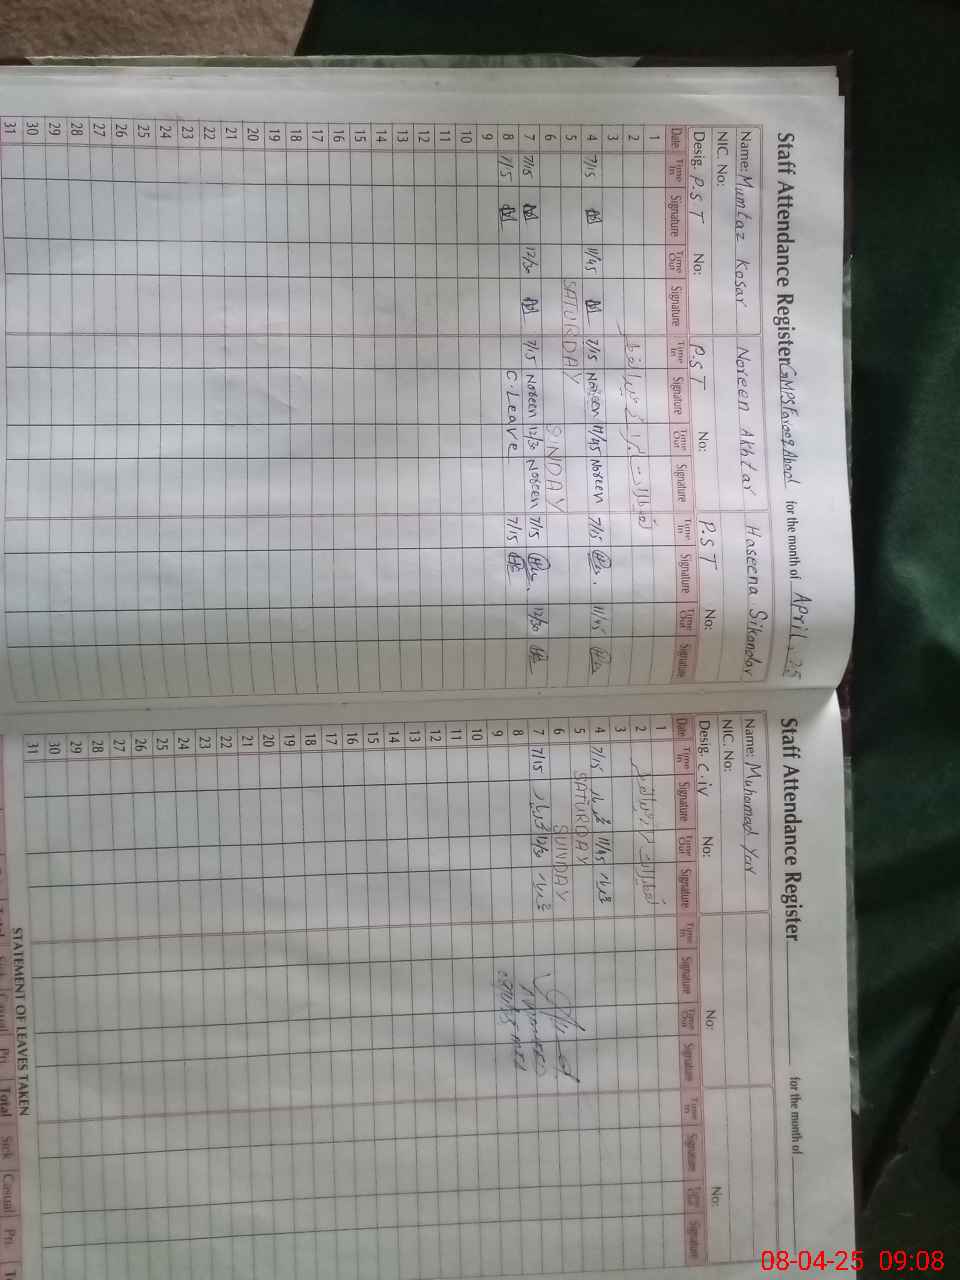 Staff Attendance Register GMPS Farooq Abad for the month of April, 25
Name: Mumtaz Kosar Noreen Akhtar Haseena Sikandar
NIC. No:
Desig. P.S.T No: P.S.T No: P.S.T No:
Date Time In Signature Time Out Signature Time In Signature Time Out Signature Time In Signature Time Out Signature
1
2
3
4 7/15 11/45 7/15 Noreen 11/45 Noreen 7/15 11/45
5 SATURDAY
6 SINDAY
7 7/15 12/30 7/15 Noreen 12/30 Noreen 7/15 12/30
8 7/15 C.Leave 7/15
9
10
11
12
13
14
15
16
17
18
19
20
21
22
23
24
25
26
27
28
29
30
31
Staff Attendance Register for the month of
Name: Muhamad Yar
NIC. No:
Desig. C.iv No: No: No:
Date Time In Signature Time Out Signature Time In Signature Time Out Signature Time In Signature Time Out Signature
1
2
3
4 7/15 11/45
5 SATURDAY
6 SUNDAY
7 7/15 12/30
8
9
10
11
12
13
14
15
16
17
18
19
20
21
22
23
24
25
26
27
28
29
30
31
STATEMENT OF LEAVES TAKEN
Total Sick Casual Pri.
08-04-25 09:08